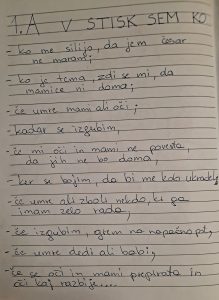 1.A V STISK SEM KO
- ko me silijo, da jem česar
ne maram;
- ko je tema, zdi se mi, da
mamice ni doma;
- če umre mami ali oči;
- kadar se izgubim,
- če mi oči in mami ne povesta,
da jih ne bo doma,
- ker se bojim, da bi me kdo ukradel;
- če umre ali zboli nekdo, ki ga
imam zelo rada,
- če izgubim, grem na napačno pot,
- če umre dedi ali babi;
- če se oči in mami prepirata in
oči kaj razbije....